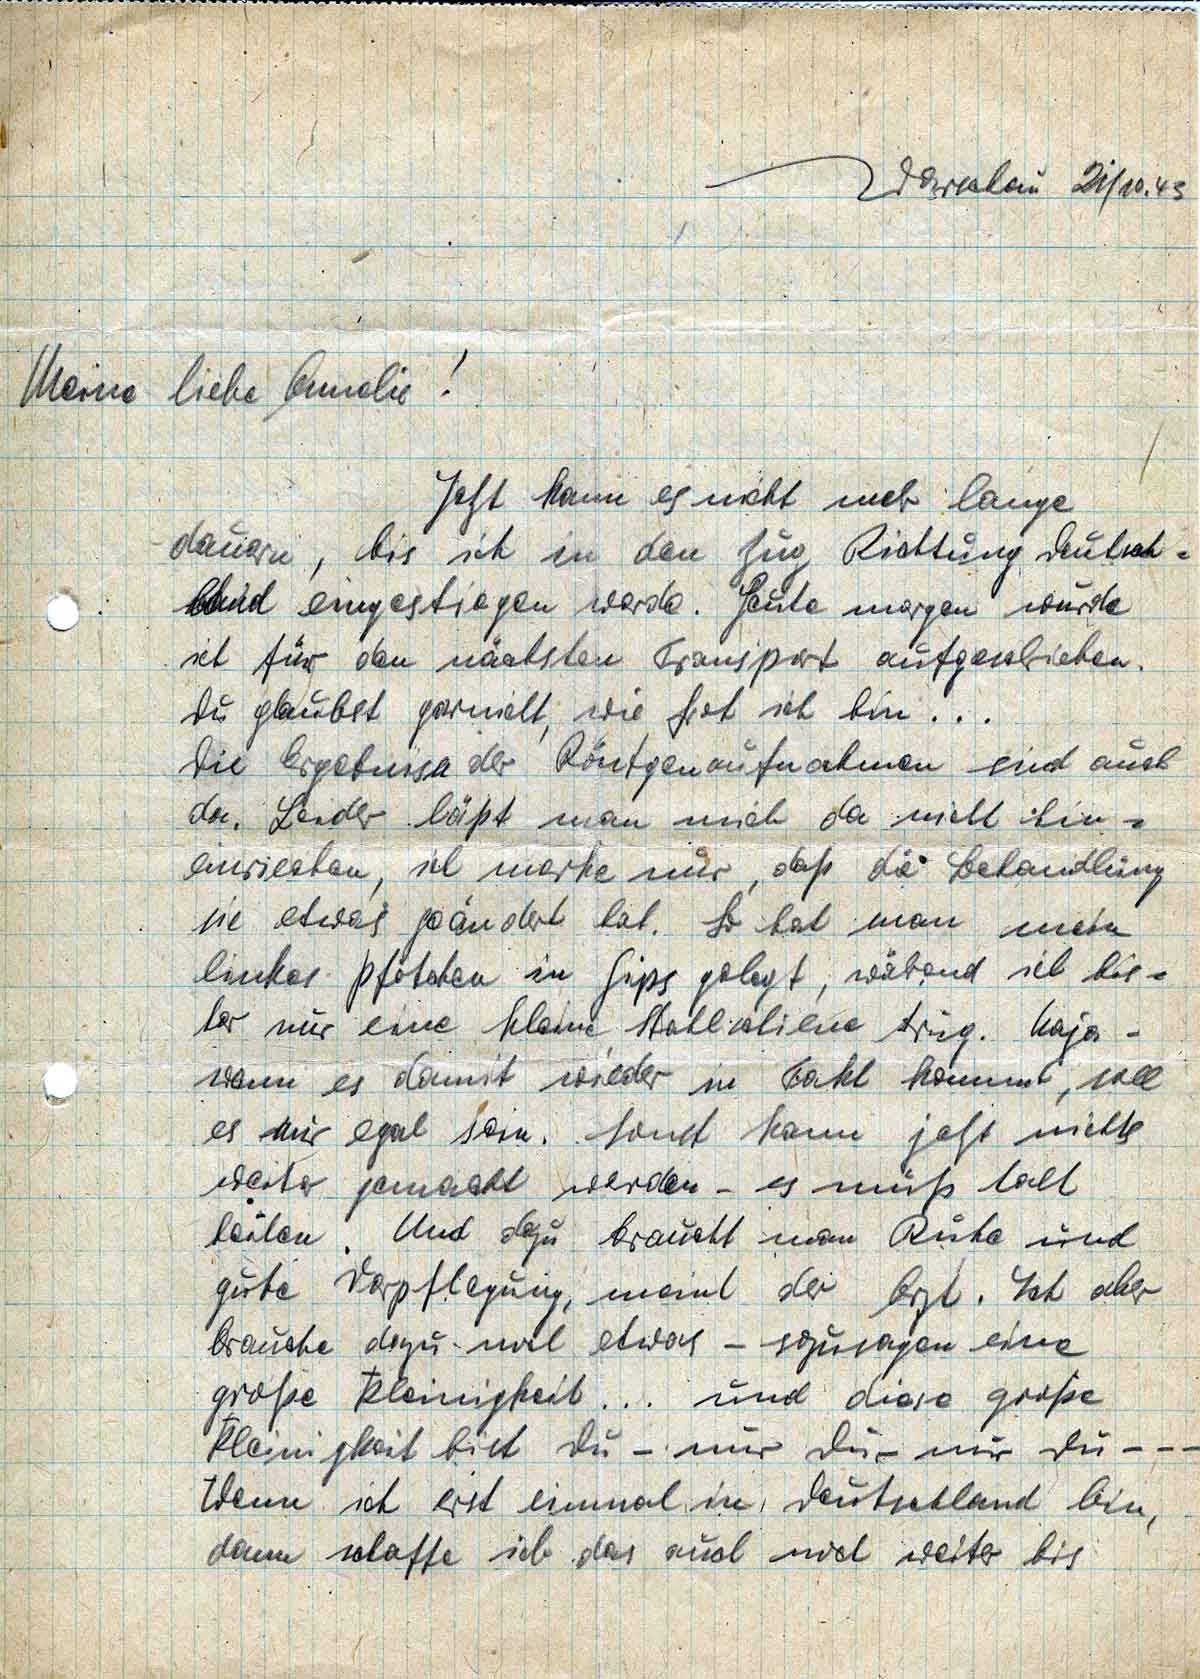 Warschau 21/10.43
Meine liebe Annelie!
Jetzt kann es nicht mehr lange
dauern, bis ich in den Zug Richtung Deutsch-
land eingestiegen werde. Heute morgen wurde
ich für den nächsten Transport aufgeschrieben.
Du glaubst garnicht, wie froh ich bin...
Die Ergebnisse der Röntgenaufnahmen sind auch
da. Leider läßt man mich da nicht hin-
einriechen, ich merke nur, daß die Behandlung
sie etwas geändert hat. So hat man mein
linkes Pfötchen in Gips gelegt, während ich bis-
her nur eine kleine Stahlschiene trug. Naja -
wenn es damit wieder in Takt kommt, soll
es mir egal sein. Sonst kann jetzt nichts
weiter gemacht werden - es muß halt
heilen. Und dazu braucht man Ruhe und
gute Verpflegung, meint der Arzt. Ich aber
brauche dazu noch etwas - sozusagen eine
große Kleinigkeit... und diese große
Kleinigkeit bist Du - nur Du - nur Du - - -
Wenn ich erst einmal in Deutschland bin,
dann schaffe ich das auch noch weiter bis